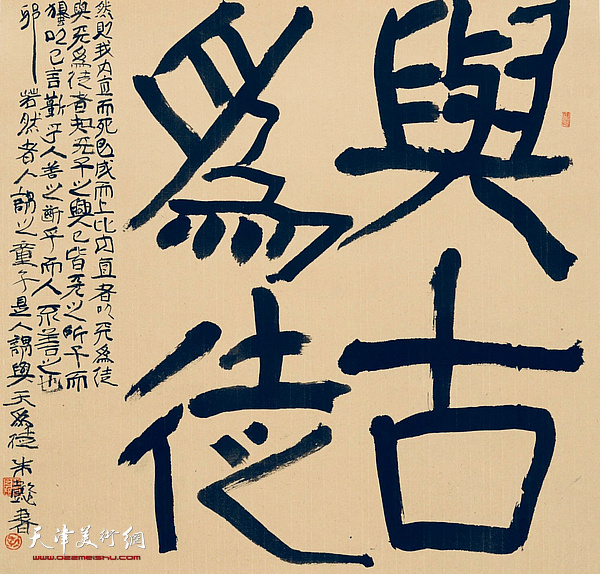 與古
爲徒
然則我内直而外曲成而上比内直者以天爲徒
與天爲徒者知天子之與己皆天之所子而
獨以己言蘄乎人善之蘄乎而人不善之也
邪若然者人謂之童子是人謂與天爲徒 朱懿書
天津美術網
www.022meishu.com